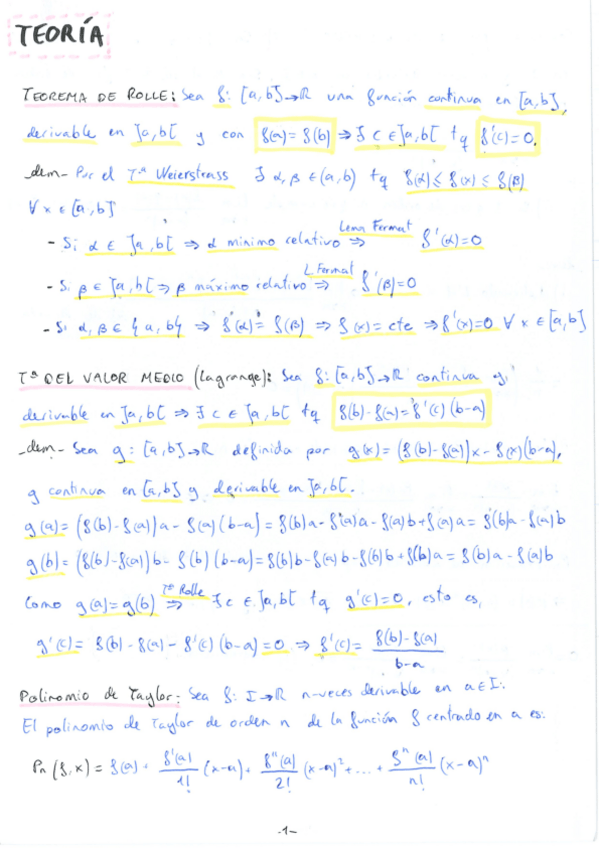 TEORÍA
TEOREMA DE ROLLE: Sea f: [a,b]→ℝ una función continua en [a,b],
derivable en ]a,b[ y con f(a)=f(b) ⇒ ∃ c∈]a,b[ tq f'(c)=0.
_dem_ Por el Tª Weierstrass ∃ α,β∈(a,b) tq f(α)≤f(x)≤f(β)
∀x∈[a,b]
- Si α∈]a,b[ ⇒ α mínimo relativo ⇒ Lema Fermat f'(α)=0
- Si β∈]a,b[ ⇒ β máximo relativo ⇒ L.Fermat f'(β)=0
- Si α,β∈{a,b} ⇒ f(α)=f(β) ⇒ f(x)=cte ⇒ f'(x)=0 ∀x∈[a,b]
Tª DEL VALOR MEDIO (Lagrange): Sea f: [a,b]→ℝ continua y
derivable en ]a,b[ ⇒ ∃ c∈]a,b[ tq f(b)-f(a)=f'(c)(b-a)
_dem_ Sea g: [a,b]→ℝ definida por g(x)=(f(b)-f(a))x-f(x)(b-a),
g continua en [a,b] y derivable en ]a,b[.
g(a)=(f(b)-f(a))a-f(a)(b-a)=f(b)a-f(a)a-f(a)b+f(a)a=f(b)a-f(a)b
g(b)=(f(b)-f(a))b-f(b)(b-a)=f(b)b-f(a)b-f(b)b+f(b)a=f(b)a-f(a)b
Como g(a)=g(b) ⇒ Tª Rolle ∃ c∈]a,b[ tq g'(c)=0, esto es,
g'(c)=f(b)-f(a)-f'(c)(b-a)=0 ⇒ f'(c)= f(b)-f(a) / b-a
Polinomio de Taylor: Sea f: I→ℝ n-veces derivable en a∈I.
El polinomio de Taylor de orden n de la función f centrado en a es:
Pn(f,x)=f(a)+ f'(a)/1! (x-a)+ f''(a)/2! (x-a)²+...+ fⁿ(a)/n! (x-a)ⁿ
-1-